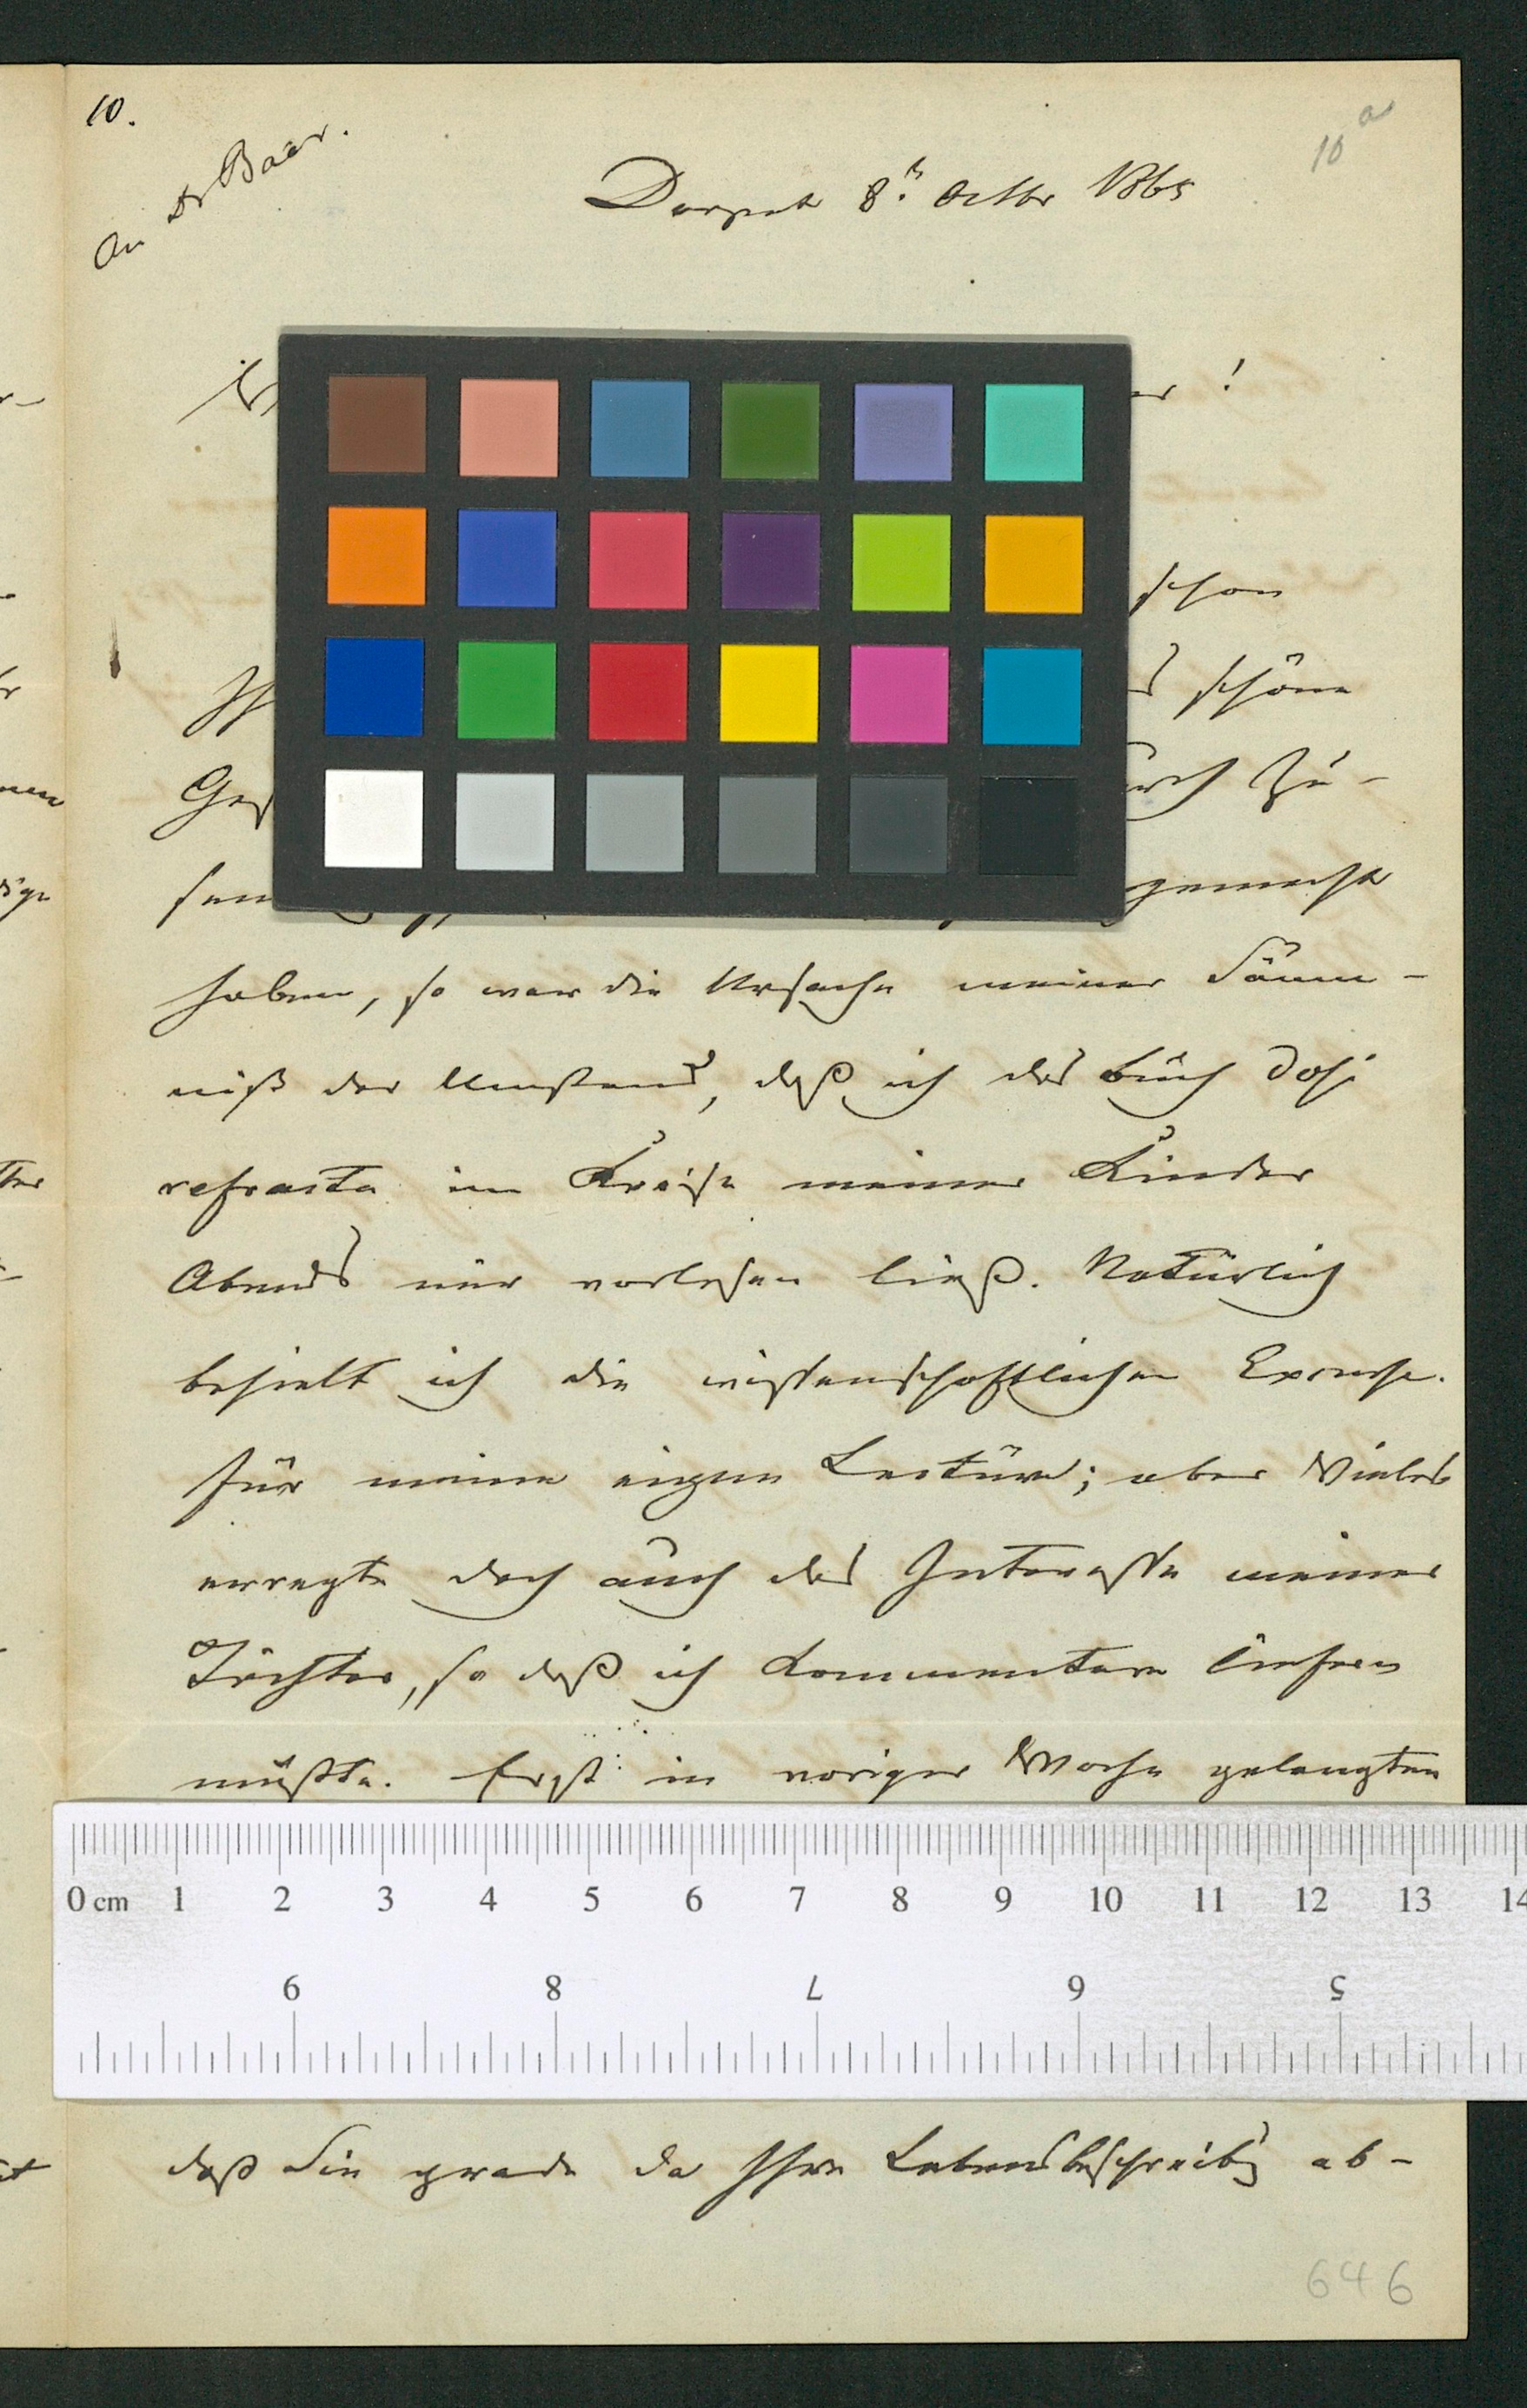 10.
10 a
An Dr Baer.
Dorpat 8t. Octbr 1865
!
schon
schöne
Ges
durch Zu-
sen
gemacht
haben, so war die Ursache meiner Säum-
niß der Umstand, daß ich das Buch dosi
refracta im Kreise meiner Kinder
Abends mir vorlesen ließ. Natürlich
behielt ich die wissenschaftlichen Excurse
für meine eigene Lectüre; aber Vieles
erregte doch auch das Interesse meiner
Töchter, so daß ich Kommentare liefern
mußte. Erst in voriger Woche gelangten
0 cm 1 2 3 4 5 6 7 8 9 10 11 12 13 14
9 8 7 6 5
daß Sie grade da Ihre Lebensbeschreibg ab-
646